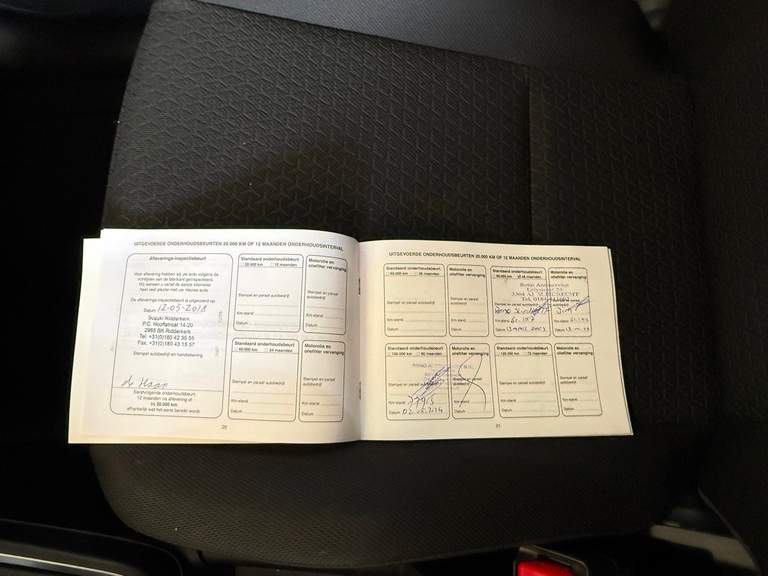 UITGEVOERDE ONDERHOUDSBEURTEN 20.000 KM OF 12 MAANDEN ONDERHOUDSINTERVAL
Afleverings-inspectiebeurt
Voor aflevering hebben wij uw auto volgens de
voorschriften van de fabrikant geïnspecteerd.
Wij wensen u vanaf de eerste kilometer
zeer veel plezier met uw nieuwe auto.
De afleveringsinspectie is uitgevoerd op:
Datum 12-05-2018
Suzuki Ridderkerk
P.C. Hooftstraat 14-20
2985 BK Ridderkerk
Tel. +31(0)180 42 35 55
Fax. +31(0)180 43 15 57
Stempel autobedrijf en handtekening
de Haan
Eerstvolgende onderhoudsbeurt:
12 maanden na aflevering of
bij 20.000 km
afhankelijk wat het eerst bereikt wordt
Standaard onderhoudsbeurt
20.000 km 12 maanden
Stempel en paraaf autobedrijf
Km-stand
Datum
Motorolie en
oliefilter vervanging
Stempel en paraaf
autobedrijf
Km-stand
Datum
Standaard onderhoudsbeurt
40.000 km 24 maanden
Stempel en paraaf autobedrijf
Km-stand
Datum
Motorolie en
oliefilter vervanging
Stempel en paraaf
autobedrijf
Km-stand
Datum
UITGEVOERDE ONDERHOUDSBEURTEN 20.000 KM OF 12 MAANDEN ONDERHOUDSINTERVAL
Standaard onderhoudsbeurt
60.000 km 36 maanden
Stempel en paraaf autobedrijf
Km-stand
Datum
Motorolie en
oliefilter vervanging
Stempel en paraaf
autobedrijf
Km-stand
Datum
Standaard onderhoudsbeurt
80.000 km 48 maanden
Km-stand 61.157
Datum
Motorolie en
oliefilter vervanging
Km-stand
Datum
Standaard onderhoudsbeurt
100.000 km 60 maanden
Stempel en paraaf autobedrijf
Km-stand 77915
Datum
Motorolie en
oliefilter vervanging
Stempel en paraaf
autobedrijf
Km-stand
Datum
Standaard onderhoudsbeurt
120.000 km 72 maanden
Stempel en paraaf autobedrijf
Km-stand
Datum
Motorolie en
oliefilter vervanging
Stempel en paraaf
autobedrijf
Km-stand
Datum